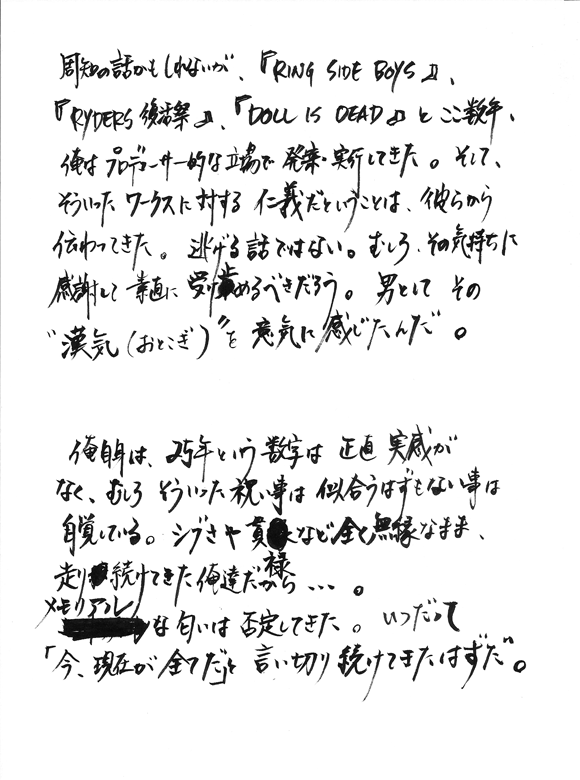 周知の話かもしれないが、『RING SIDE BOYS』、
『RYDERS復活祭』、『DOLL IS DEAD』とここ数年、
俺はプロデューサー的な立場で発案・実行してきた。そして、
そういったワークスに対する仁義だということは、彼らから
伝わってきた。逃げる話ではない。むしろ、その気持ちに
感謝して素直に受け止めるべきだろう。男としてその
“漢気(おとこぎ)”を意気に感じたんだ。
俺自身は、25年という数字は正直実感が
なく、むしろそういった祝い事は似合うはずもない事は
自覚している。シブさや貫禄など全く無縁なまま、
走り続けてきた俺達だから…。
メモリアルな匂いは否定してきた。いつだって
「今、現在が全てだ」と言い切り続けてきたはずだ。